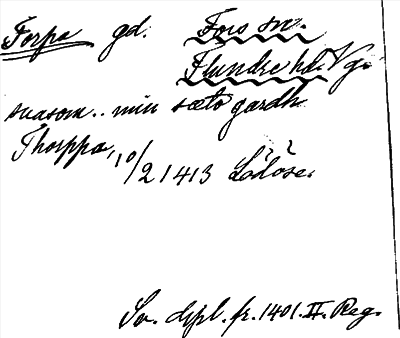 Torpa gd. Fors sn.
Flundre hd. Vg.
suasom.. min sæto gardh
Thorppa, 10/2 1413 Lödöse.
Sv. dipl. fr. 1401. II. Reg.